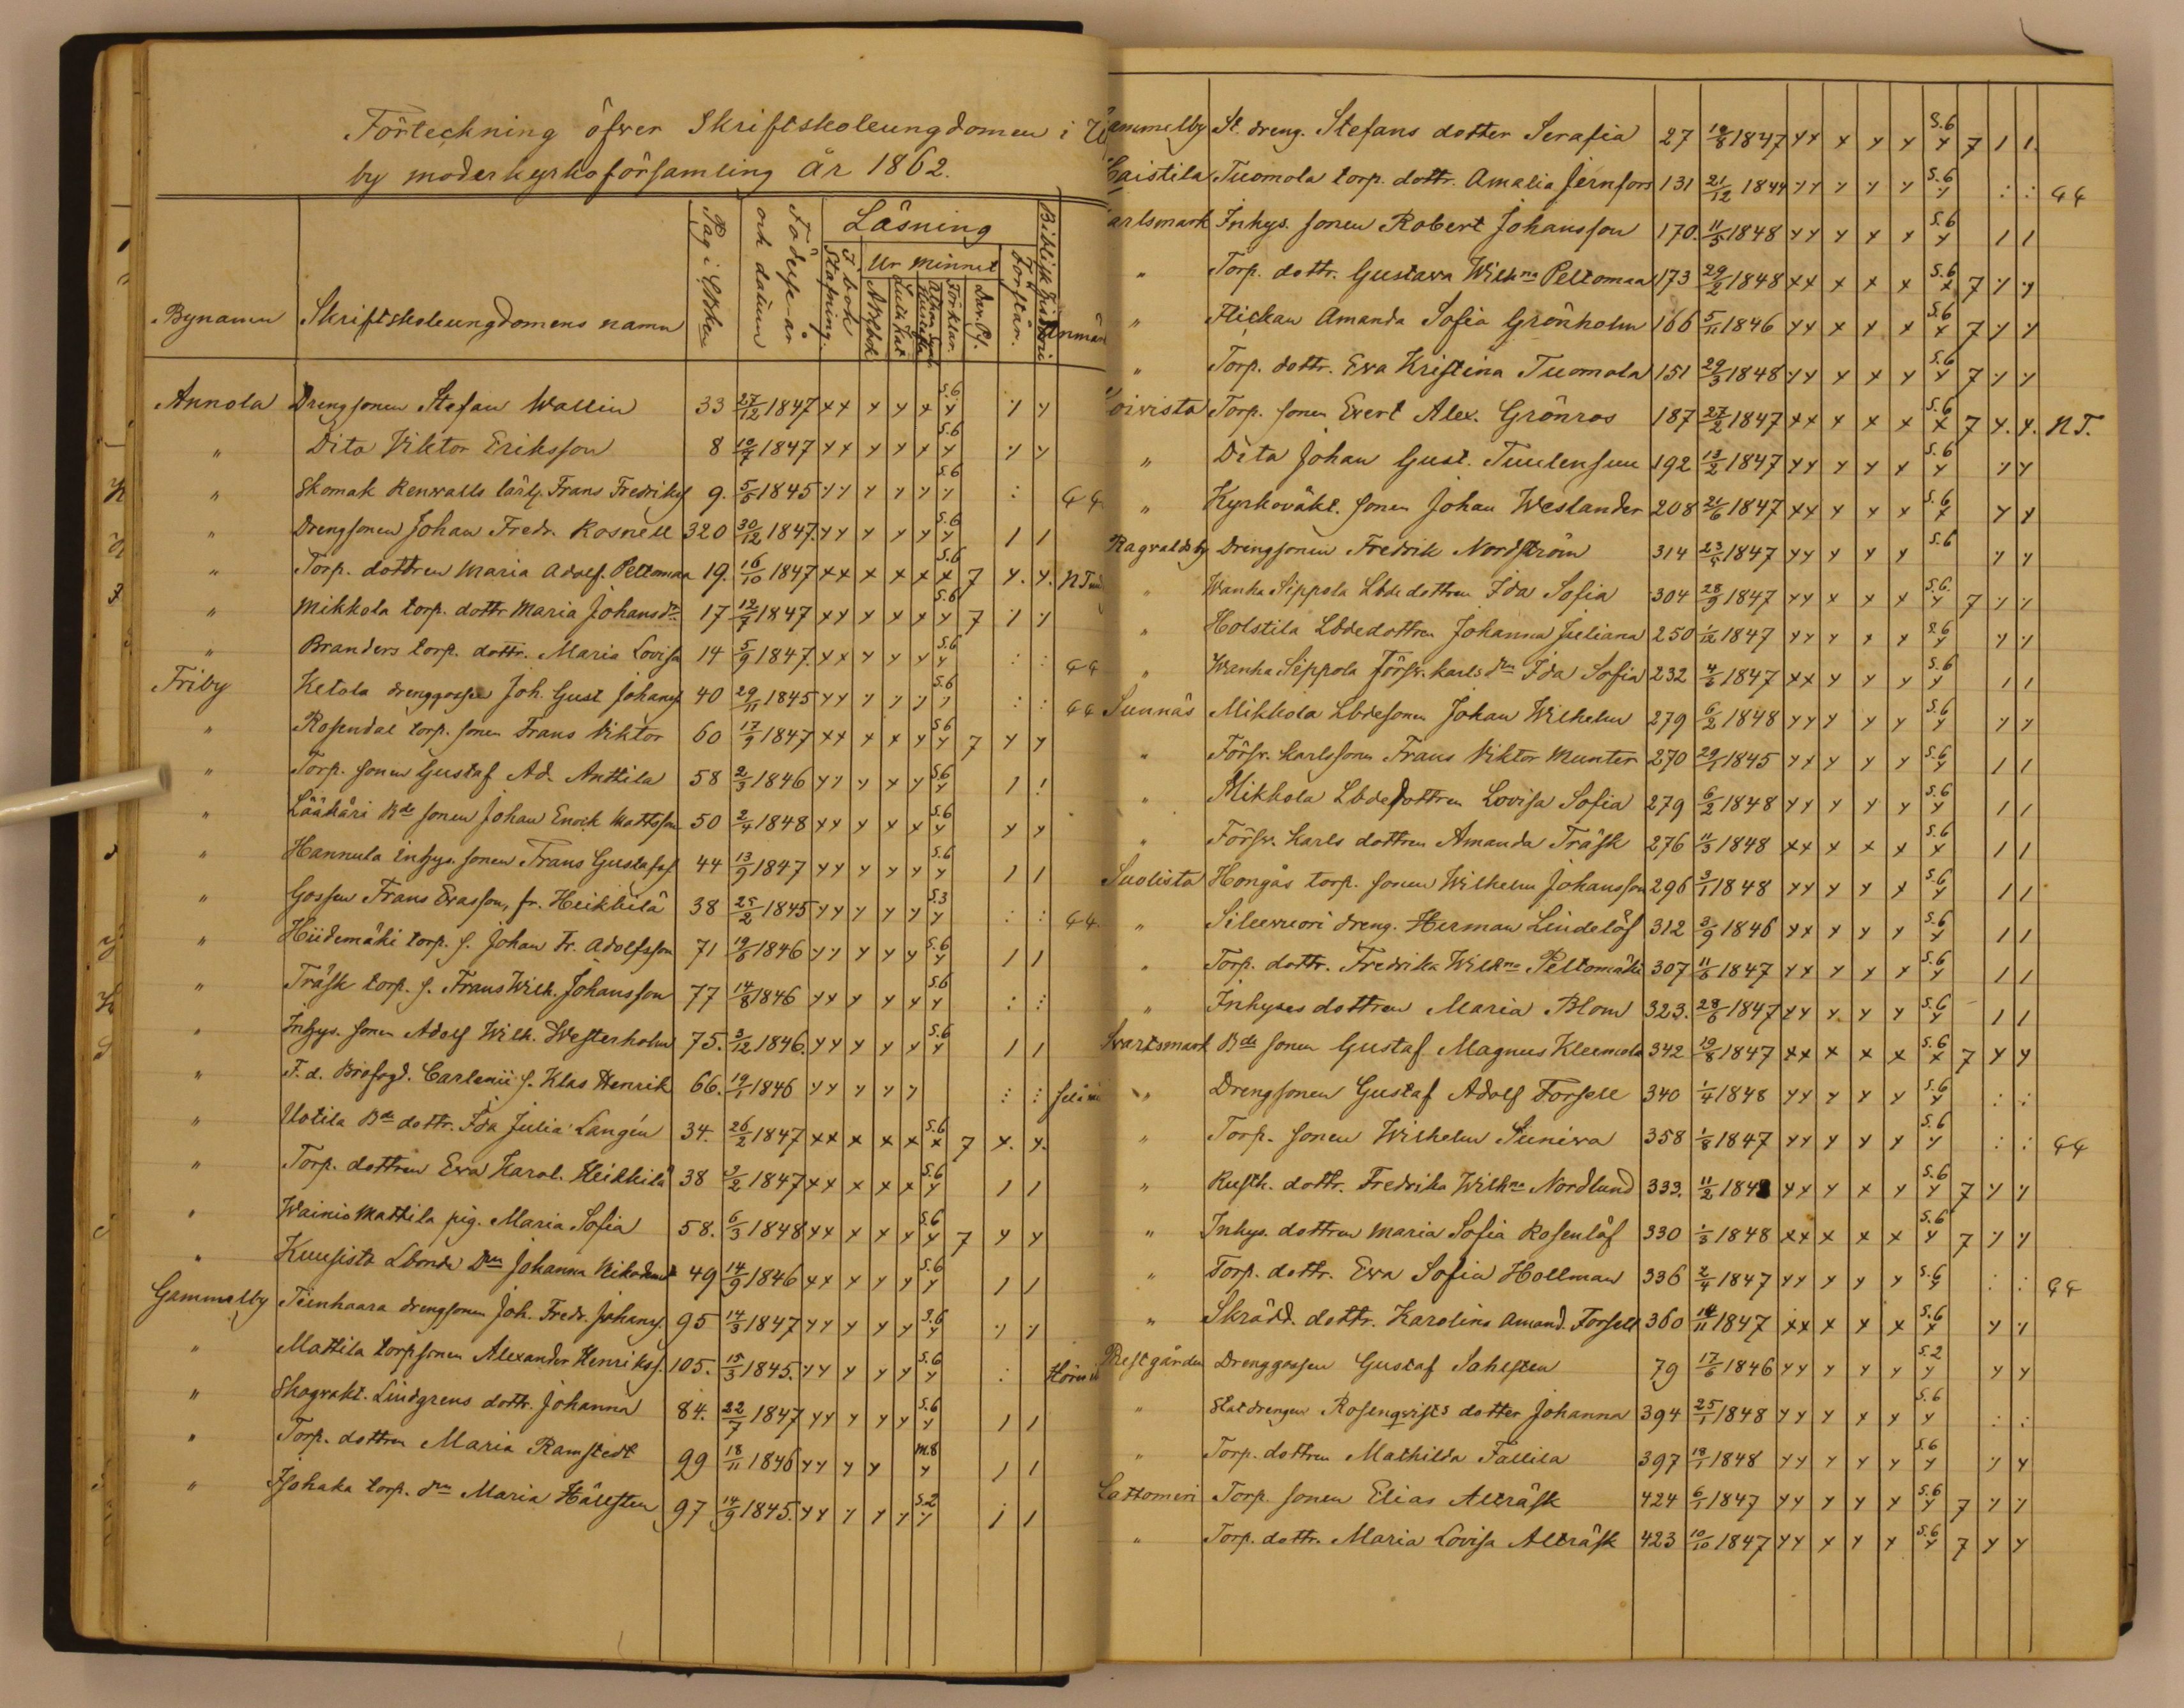 Förteckning öfver Skriftskoleungdomen i
by moderkyrkoförsamling år 1862.
Bynamn Skriftskoleungdomens namn Pag i Kbken Födelse-år och datum Läsning Stafning. I bok Ur minnet Abcbok Luth. Kat. Förklar. Dav. Ps. Förstån. Biblisk historia Anmän
Annola Drengsonen Stefan Wallin 33 27/12 1847 x x x x x S.6 x x x
" Dito Viktor Eriksson 8 10/7 1847 x x x x x S.6 x x x
" Skomak Renvalls lärl. Frans Fredrikss 9. 5/6 1845 S.6 : G G
" Drengsonen Johan Fredr. Rosnell 320 30/12 1847. x x x x x S.6 x / /
" Torp. dottren Maria Adolf. Peltomaa 19. 16/10 1847 x x x x x S.6 x 7 x. x. N T
" Mikkola torp. dottr Maria Johansdr 17 12/7 1847 x x x x x S.6 x 7 x x
" Branders torp. dottr. Maria Lovisa 14 5/9 1847. x x x x x S.6 x : : G G
Friby Ketola drenggosse Joh. Gust Johanss 40 29/11 1845 S.6 : : G G
" Rosendal torp. sonen Frans Viktor 60 17/9 1847 x x x x x S.6 x 7 x x
" Torp. sonen Gustaf Ad. Anttila 58 2/3 1846 x x x x x S.6 x / /
" Lääkäri Bde sonen Johan Enock Mattsson 50 2/4 1848 x x x x x S.6 x x x
" Hannula inhys. sonen Frans Gustafss 44 13/9 1847 x x x x x S.6 x / /
" Gossen Frans Evasson, fr. Heikkilä 38 25/2 1845 x x x x x S.3 x : : G G.
" Hiidemäki torp. s. Johan Fr. Adolfsson 71 19/6 1846 x x x x x S.6 x / /
" Träsk torp. s. Frans Wilh. Johansson 77 14/8 1846 x x x x x S.6 x : :
" Inhys. sonen Adolf Wilh. Westerholm 75. 3/12 1846. x x x x x S.6 x / /
" F. d. Brofogd. Carlenii s. Klas Henrik 66. 19/1 1846 x x x x x : :
" Uotila Bde dottr. Ida Julia Langén 34. 26/2 1847 x x x x x S.6 x 7 x. x.
" Torp. dottren Eva Karol. Heikkilä 38 9/2 1847 x x x x x S.6 x / /
" Wainio Mattila pig. Maria Sofia 58. 6/3 1848 x x x x x S.6 x 7 x x
" Kuusisto Lbonde Dren Johanna Nikodemi 49 14/9 1846 x x x x x S.6 x / /
Gammelby Tiinhaara drengsonen Joh. Fredr. Johanss. 95 14/3 1847 x x x x x S.6 x x x
" Mattila torpsonen Alexander Henrikss. 105. 15/3 1845. x x x x x S.6 x :
" Skogvakt. Lindgrens dottr. Johanna 84. 22/7 1847 x x x x x S.6 x / /
" Torp. dottren Maria Ramstedt 99 18/11 1846 x x x x M.8 x / /
" Isohaka torp. dren Maria Hällsten 97 14/9 1845. x x x x x S.2 x / /
ammelby St. dreng. Stefans dotter Serafia 27 19/8 1847 x x x x x S.6 x 7 / /.
Caistila Tuomola torp. dottr. Amalia Jernfors 131 21/12 1844 x x x x x S.6 x : : G G
arlsmark Inhys. sonen Robert Johansson 170. 11/5 1848 x x x x x S.6 x / /
" Torp. dottr. Gustava Wilhna Peltomaa 173 29/2 1848 x x x x x S.6 x 7 x x
" Flickan Amanda Sofia Grönholm 166 5/11 1846 x x x x x S.6 x 7 x x
" Torp. dottr. Eva Kristina Tuomola 151 29/3 1848 x x x x x S.6 x 7 x x
oivisto Torp. sonen Evert Alex. Grönros 187 27/2 1847 x x x x x S.6 x 7 x. x. N T.
" Dito Johan Gust. Tuulensuu 192 13/2 1847 x x x x x S.6 x x x
" Kyrkoväkt. sonen Johan Weslander 208 21/6 1847 x x x x x S.6 x x x
Ragvaldsby Drengsonen Fredrik Nordström 314 23/5 1847 x x x x x S.6 x x
" Wanha Sippola Lbde dottren Ida Sofia 304 28/9 1847 x x x x x S.6. x 7 x x
" Holstila Lbdedottren Johanna Juliana 250 1/12 1847 x x x x x S.6 x x x
" Wanha Sippola Försv. karls dren Ida Sofia 232 4/6 1847 x x x x x S.6 x / /
Sunnäs Mikkola Lbdesonen Johan Wilhelm 279 6/2 1848 x x x x x S.6 x x x
" Försv. karlssonen Frans Viktor Munter 270 29/1 1845 x x x x x S.6 x / /
" Mikkola Lbdedottren Lovisa Sofia 279 6/2 1848 x x x x x S.6 x / /
" Försv. karls dottren Amanda Träsk 276 11/3 1848 x x x x x S.6 x / /
Suolisto Hongås torp. sonen Wilhelm Johansson 296 3/1 1848 x x x x x S.6 x / /
" Silevuori dreng. Herman Lindelöf 312 3/9 1846 x x x x x S.6 x / /
" Torp. dottr. Fredrika Wilhna Peltomäki 307 11/6 1847 x x x x x S.6 x / /
" Inhyses dottren Maria Blom 323. 28/6 1847 x x x x x S.6 x / /
Svartsmark Bde sonen Gustaf Magnus Kleemola 342 19/8 1847 x x x x x S.6 x 7 x x
" Drengsonen Gustaf Adolf Forsell 340 1/4 1848 x x x x x S.6 x : :
" Torp. sonen Wilhelm Suniva 358 1/8 1847 x x x x x S.6 x : : G G
" Rusth. dottr. Fredrika Wilhna Nordlund 333. 11/2 1848 x x x x x S.6 x 7 x x
" Inhys. dottren Maria Sofia Rosenlöf 330 1/3 1848 x x x x x S.6 x 7 x x
" Torp. dottr. Eva Sofia Hollman 336 2/4 1847 x x x x x S.6 x : : G G
" Skrädd. dottr. Karolina Amand. Forsell 360 14/11 1847 x x x x x S.6 x x x
Prestgården Drenggossen Gustaf Sahlsten 79 17/6 1846 x x x x x S.2 x x x
" Statdrengen Rosenqvists dotter Johanna 394 25/1 1848 x x x x x S.6 x : :
" Torp. dottren Mathilda Tallila 397 18/1 1848 x x x x x S.6 x x x
Lattomeri Torp. sonen Elias Allträsk 424 6/1 1847 x x x x x S.6 x 7 x x
" Torp. dottr. Maria Lovisa Allträsk 423 10/10 1847 x x x x x S.6 x 7 x x